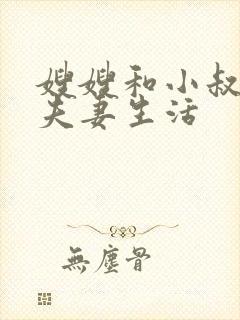 嫂嫂和小叔
夫妻生活
無塵骨